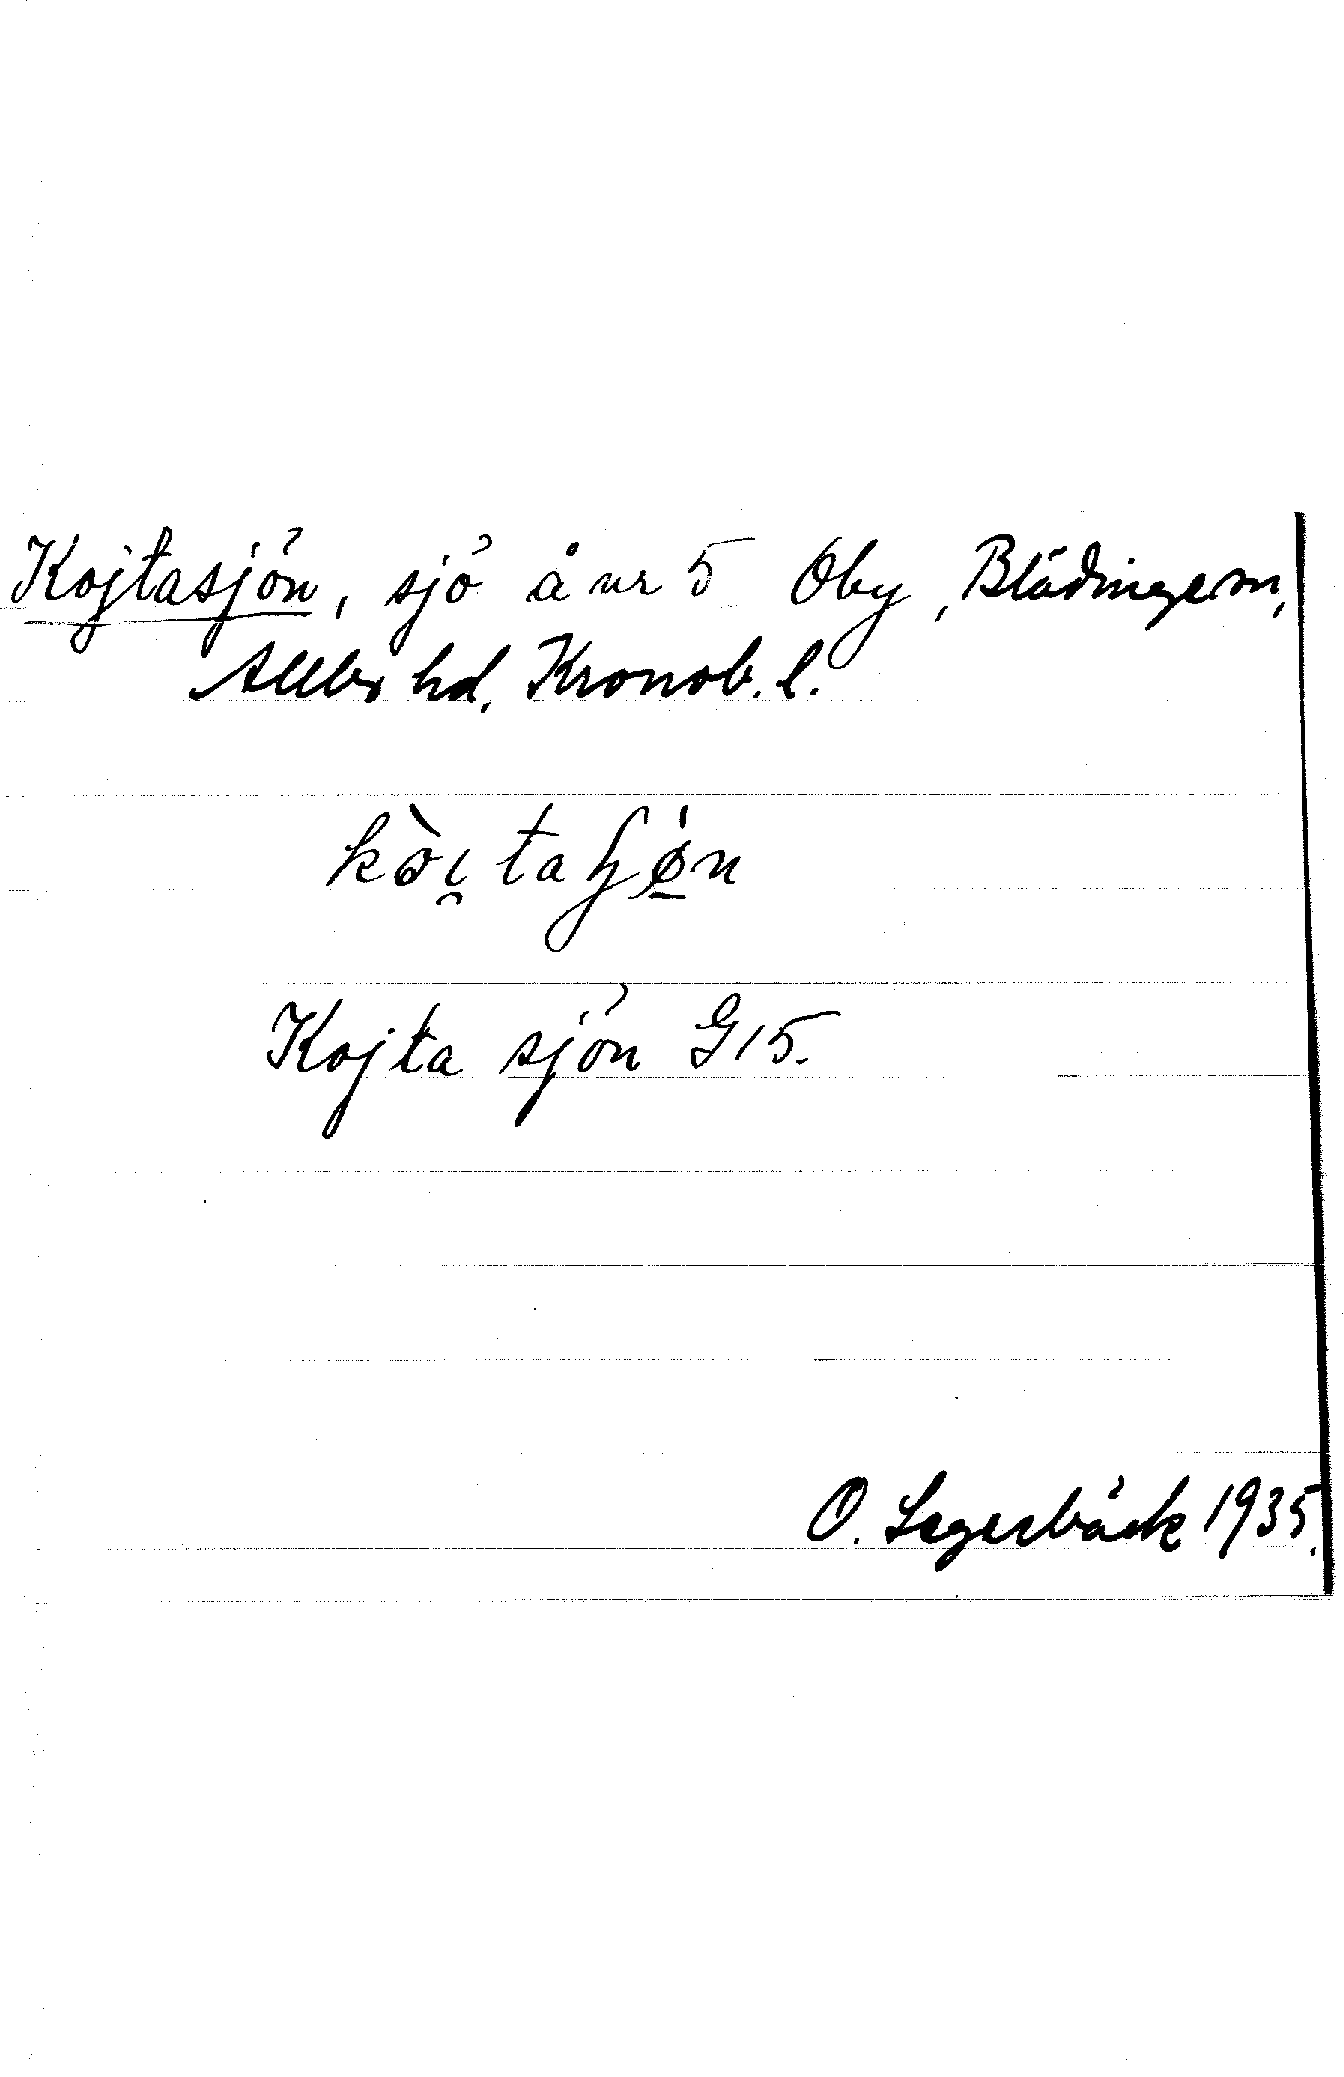 Kojtasjön, sjö å nr 5 Oby, Blädinge sn,
Allbo hd, Kronob. l.
kòi̯taɧǿ̱n
Kojta sjön G15.
O. Lagerbäck 1935.